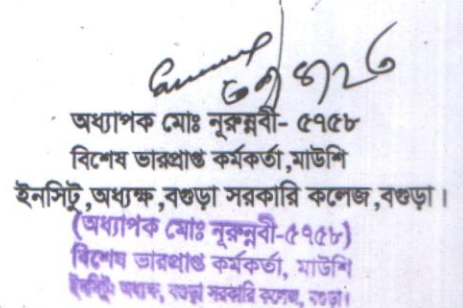 অধ্যাপক মোঃ নূরুন্নবী- ৫৭৫৮
বিশেষ ভারপ্রাপ্ত কর্মকর্তা,মাউশি
ইনসিটু,অধ্যক্ষ,বগুড়া সরকারি কলেজ,বগুড়া।
(অধ্যাপক মোঃ নূরুন্নবী-৫৭৫৮)
বিশেষ ভারপ্রাপ্ত কর্মকর্তা, মাউশি
ইনসিটু অধ্যক্ষ, বগুড়া সরকারি কলেজ, বগুড়া।